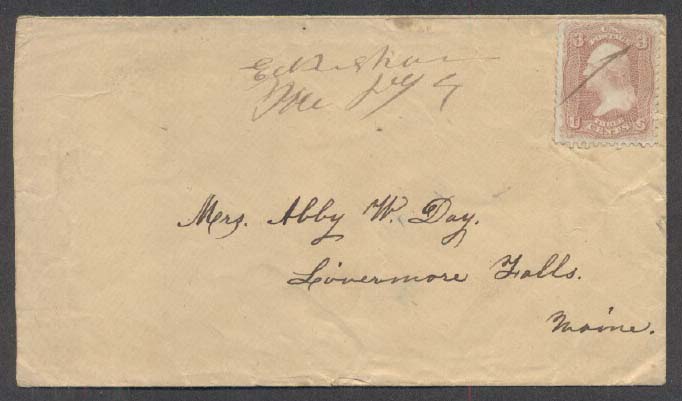 Me
3 3
U S
POSTAGE
THREE
CENTS
Mrs. Abby W. Day.
Livermore Falls.
Maine.